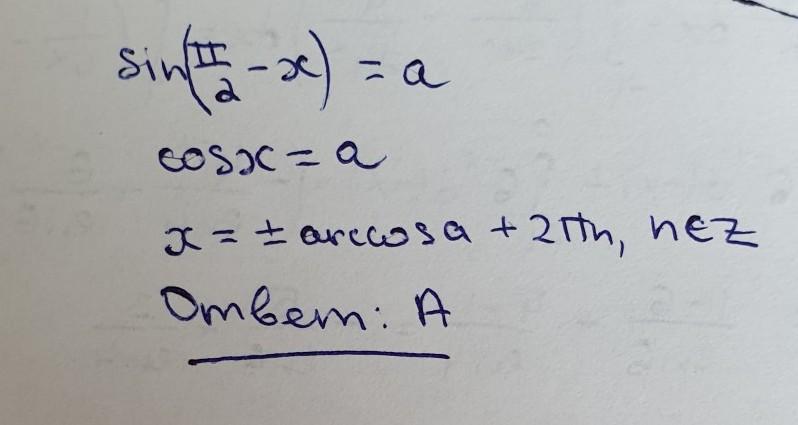 sin(π/2 - x) = a
cosx = a
x = ± arccosa + 2πn, n∈Z
Ответ: А